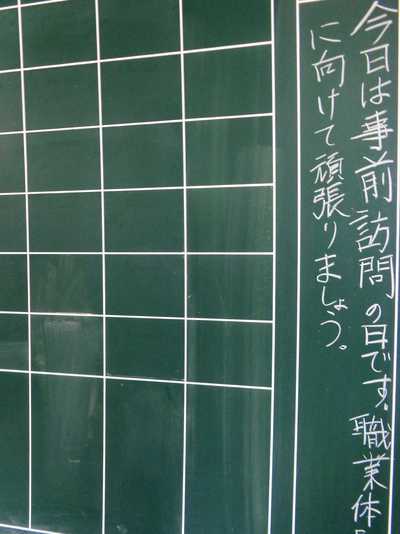 今日は事前訪問の日です。職業体
に向けて頑張りましょう。